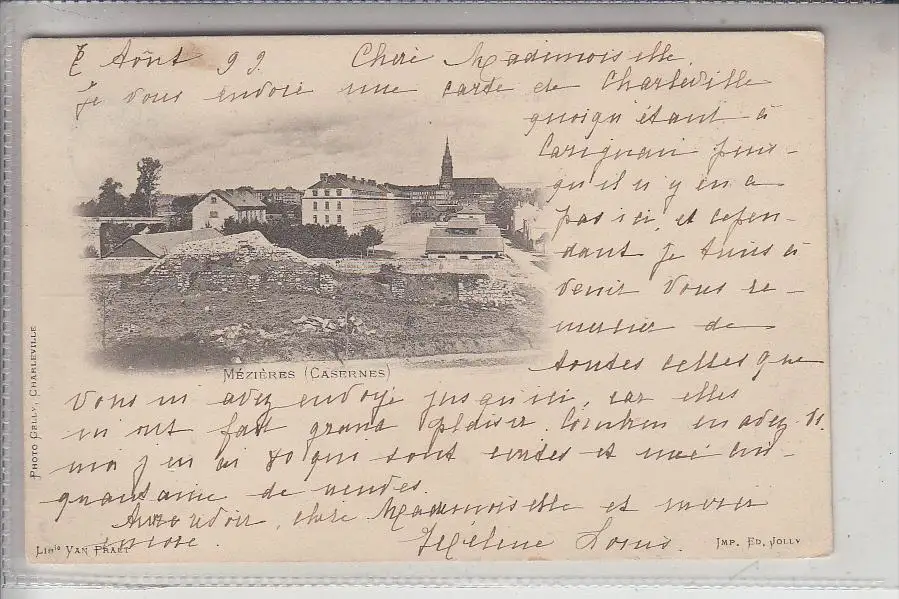 Août 99. Chère Mademoiselle,
Je vous envoie une carte de Charleville
quoiqu'étant à
Carignan puis-
qu'il n'y en a
pas ici, et cepen-
dant je tenais à
venir vous re-
mercier de
toutes celles que
vous m'avez envoyé jusqu'ici, car elles
m'ont fait grand plaisir. Combien en avez-vs.
moi j'en ai 80 qui sont écrites et une cin-
quantaine de neuves.
Au revoir, chère Mademoiselle et merci
encore. Hélène
MÉZIÈRES (CASERNES)
PHOTO GELLY, CHARLEVILLE
LIBie VAN PRAET
IMP. ED. JOLLY